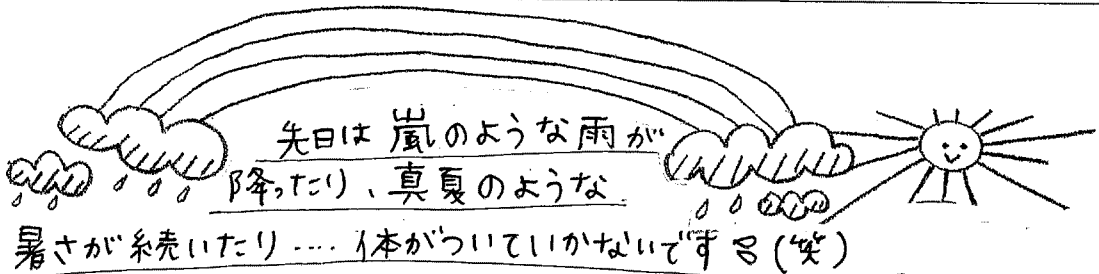 先日は嵐のような雨が
降ったり、真夏のような
暑さが続いたり....体がついていかないです(笑)